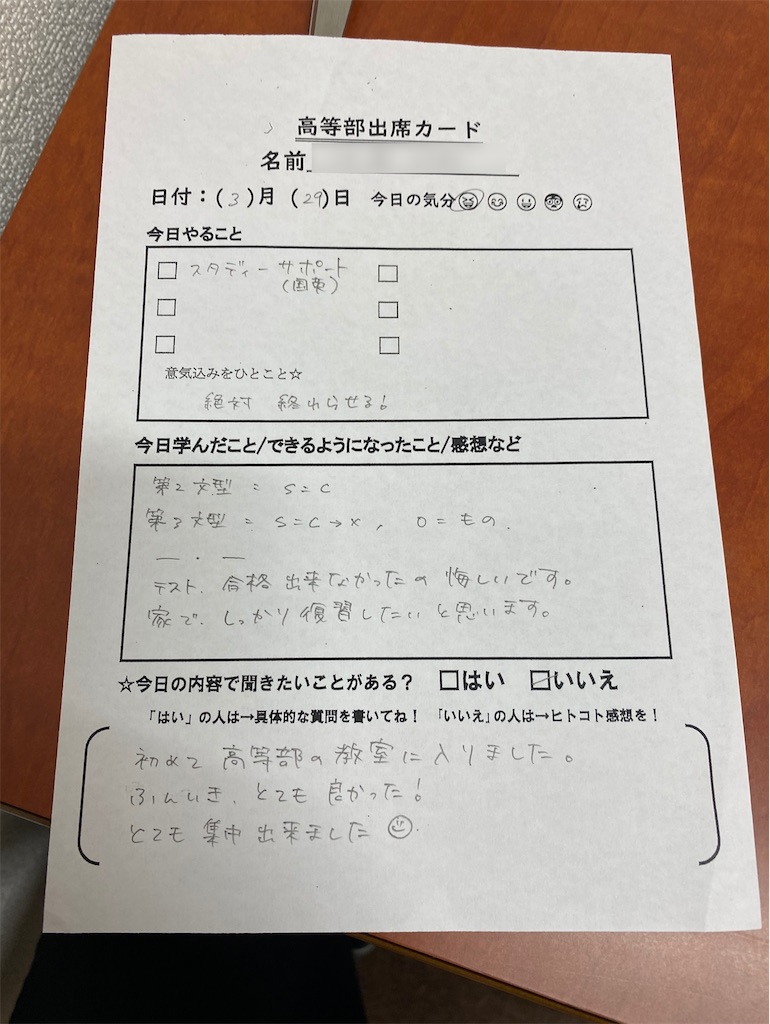 高等部出席カード
名前
日付：(3)月(29)日 今日の気分
今日やること
□スタディーサポート □
(国英)
□ □
□ □
意気込みをひとこと☆
絶対 終わらせる!
今日学んだこと/できるようになったこと/感想など
第2文型 = S=C
第3文型 = S=C→×, O=もの.
― . ―
テスト、合格出来なかったの悔しいです。
家で、しっかり復習したいと思います。
☆今日の内容で聞きたいことがある? □はい ☑いいえ
「はい」の人は→具体的な質問を書いてね! 「いいえ」の人は→ヒトコト感想を!
初めて高等部の教室に入りました。
ふんいき、とても良かった!
とても集中出来ました